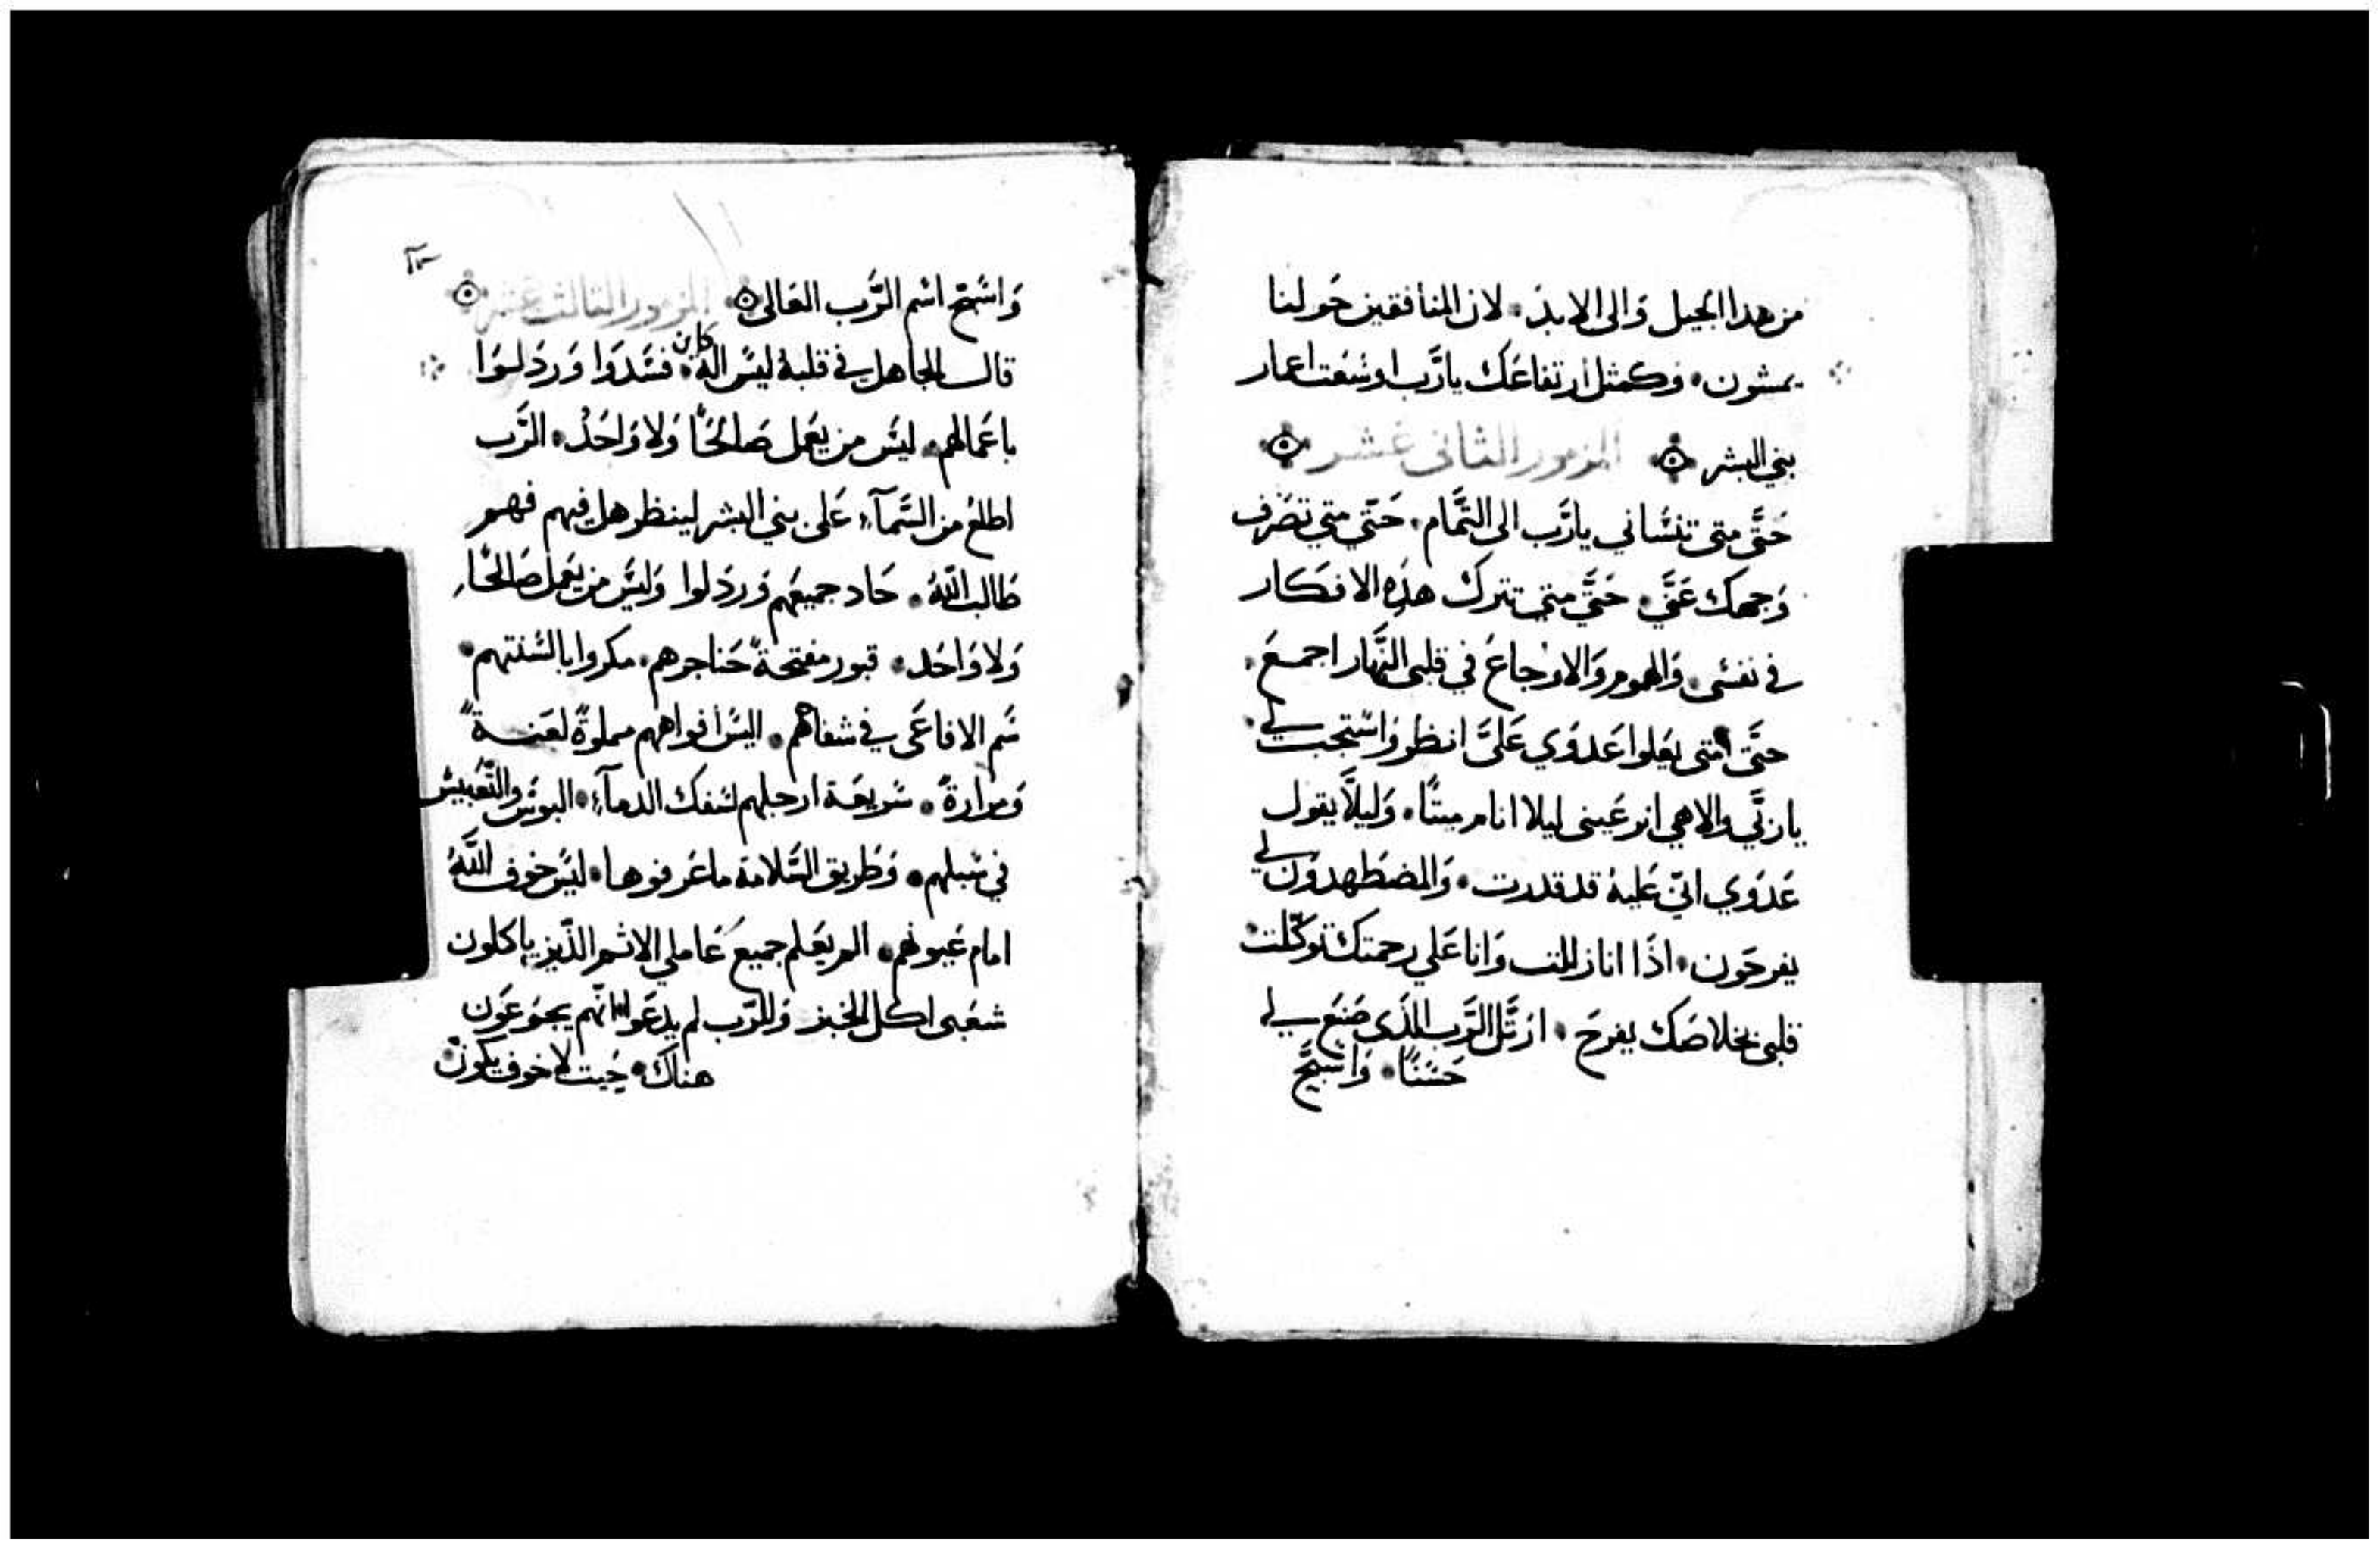 من هدا الجيل وَالى الابد. لان المنافقين حَولنا
يمشون. وَكمثل ارتفاعَك يارَّب اوسَعت اعمار
بني البشر المزمور الثانى عَشر
حَتَّى متى تنسَاني يارَّب الى التَّمام. حَتّي متي تصَرف
وَجهك عَنّي. حَتَّي متي تترك هذِه الافكار
في نفسَى. وَالهموم وَالاوْجاعَ في قلبى النَّهار اجمعَ.
حتَّى متى يعَلوا عَدوَي عَليَّ انظر وَاسْتجب لي.
يا رَبّي وَالاهي انر عَيني ليلا انام ميتًا. وَليلَّا يقول
عَدوَي انّي عَليهْ قد قدرت. وَالمضطهدوَن لي
يفرحَون. اذَا انا زللت وَانا عَلي رحمتك توَكّلت.
قلبى بخلاصَك يفرحَ. ارتَّل الرَّب الذَى صَنعَ لي
حَسَنًا. وَاسَبَّحَ
وَاسَبّحْ اسْم الرَّب العَالى المزمور التالت عَشر
قال الجاهل في قلبهْ ليسَ الهْ كاين. فسَدوَا وَردَلوَا
باعَمالهم. ليسَ من يعَمل صَالحًَا وَلا وَاحَدْ. الرَّب
اطلعْ من السَّمآءِ عَلى بني البشر لينظر هل فيهم فهم
طَالب اللَّهْ. حَاد جميعَهم وَردَلوا وَليسَ من يعَمل صَالحًا
وَلا وَاحَد. قبور مفتحَةً حَناجرهم. مكروا بالسَنتهم.
سَم الافاعَى في شفاهَم. اليسَ افواههم مملوةً لعَنةً
وَمرارةً. سَريعَة ارجلهم لسَفك الدمآءِ. البوسَ والتَّعَبيسْ
في سَبلهم. وَطَريق السَّلامة ما عَرفوها. ليسَ خوف اللَّهْ
امام عَيونهم. الم يعَلم جميعَ عَاملي الاثم الذّين ياكلون
شعَبى اكل الخبز وَللرَّب لم يدعَوا لانّهم يجزعَون
هناكَ. حَيت لا خوف يكون